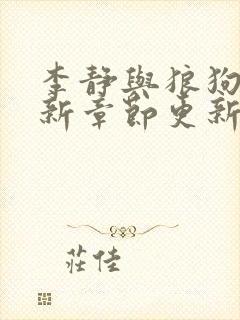 李靜與狼狗
新章節更新
莊佳